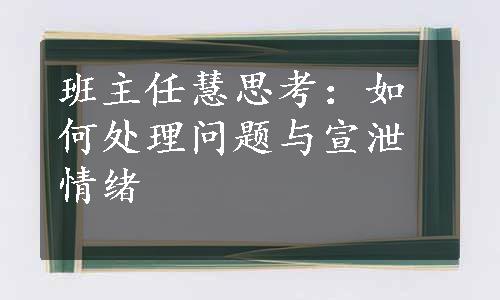 班主任慧思考：如
何处理问题与宣泄
情绪